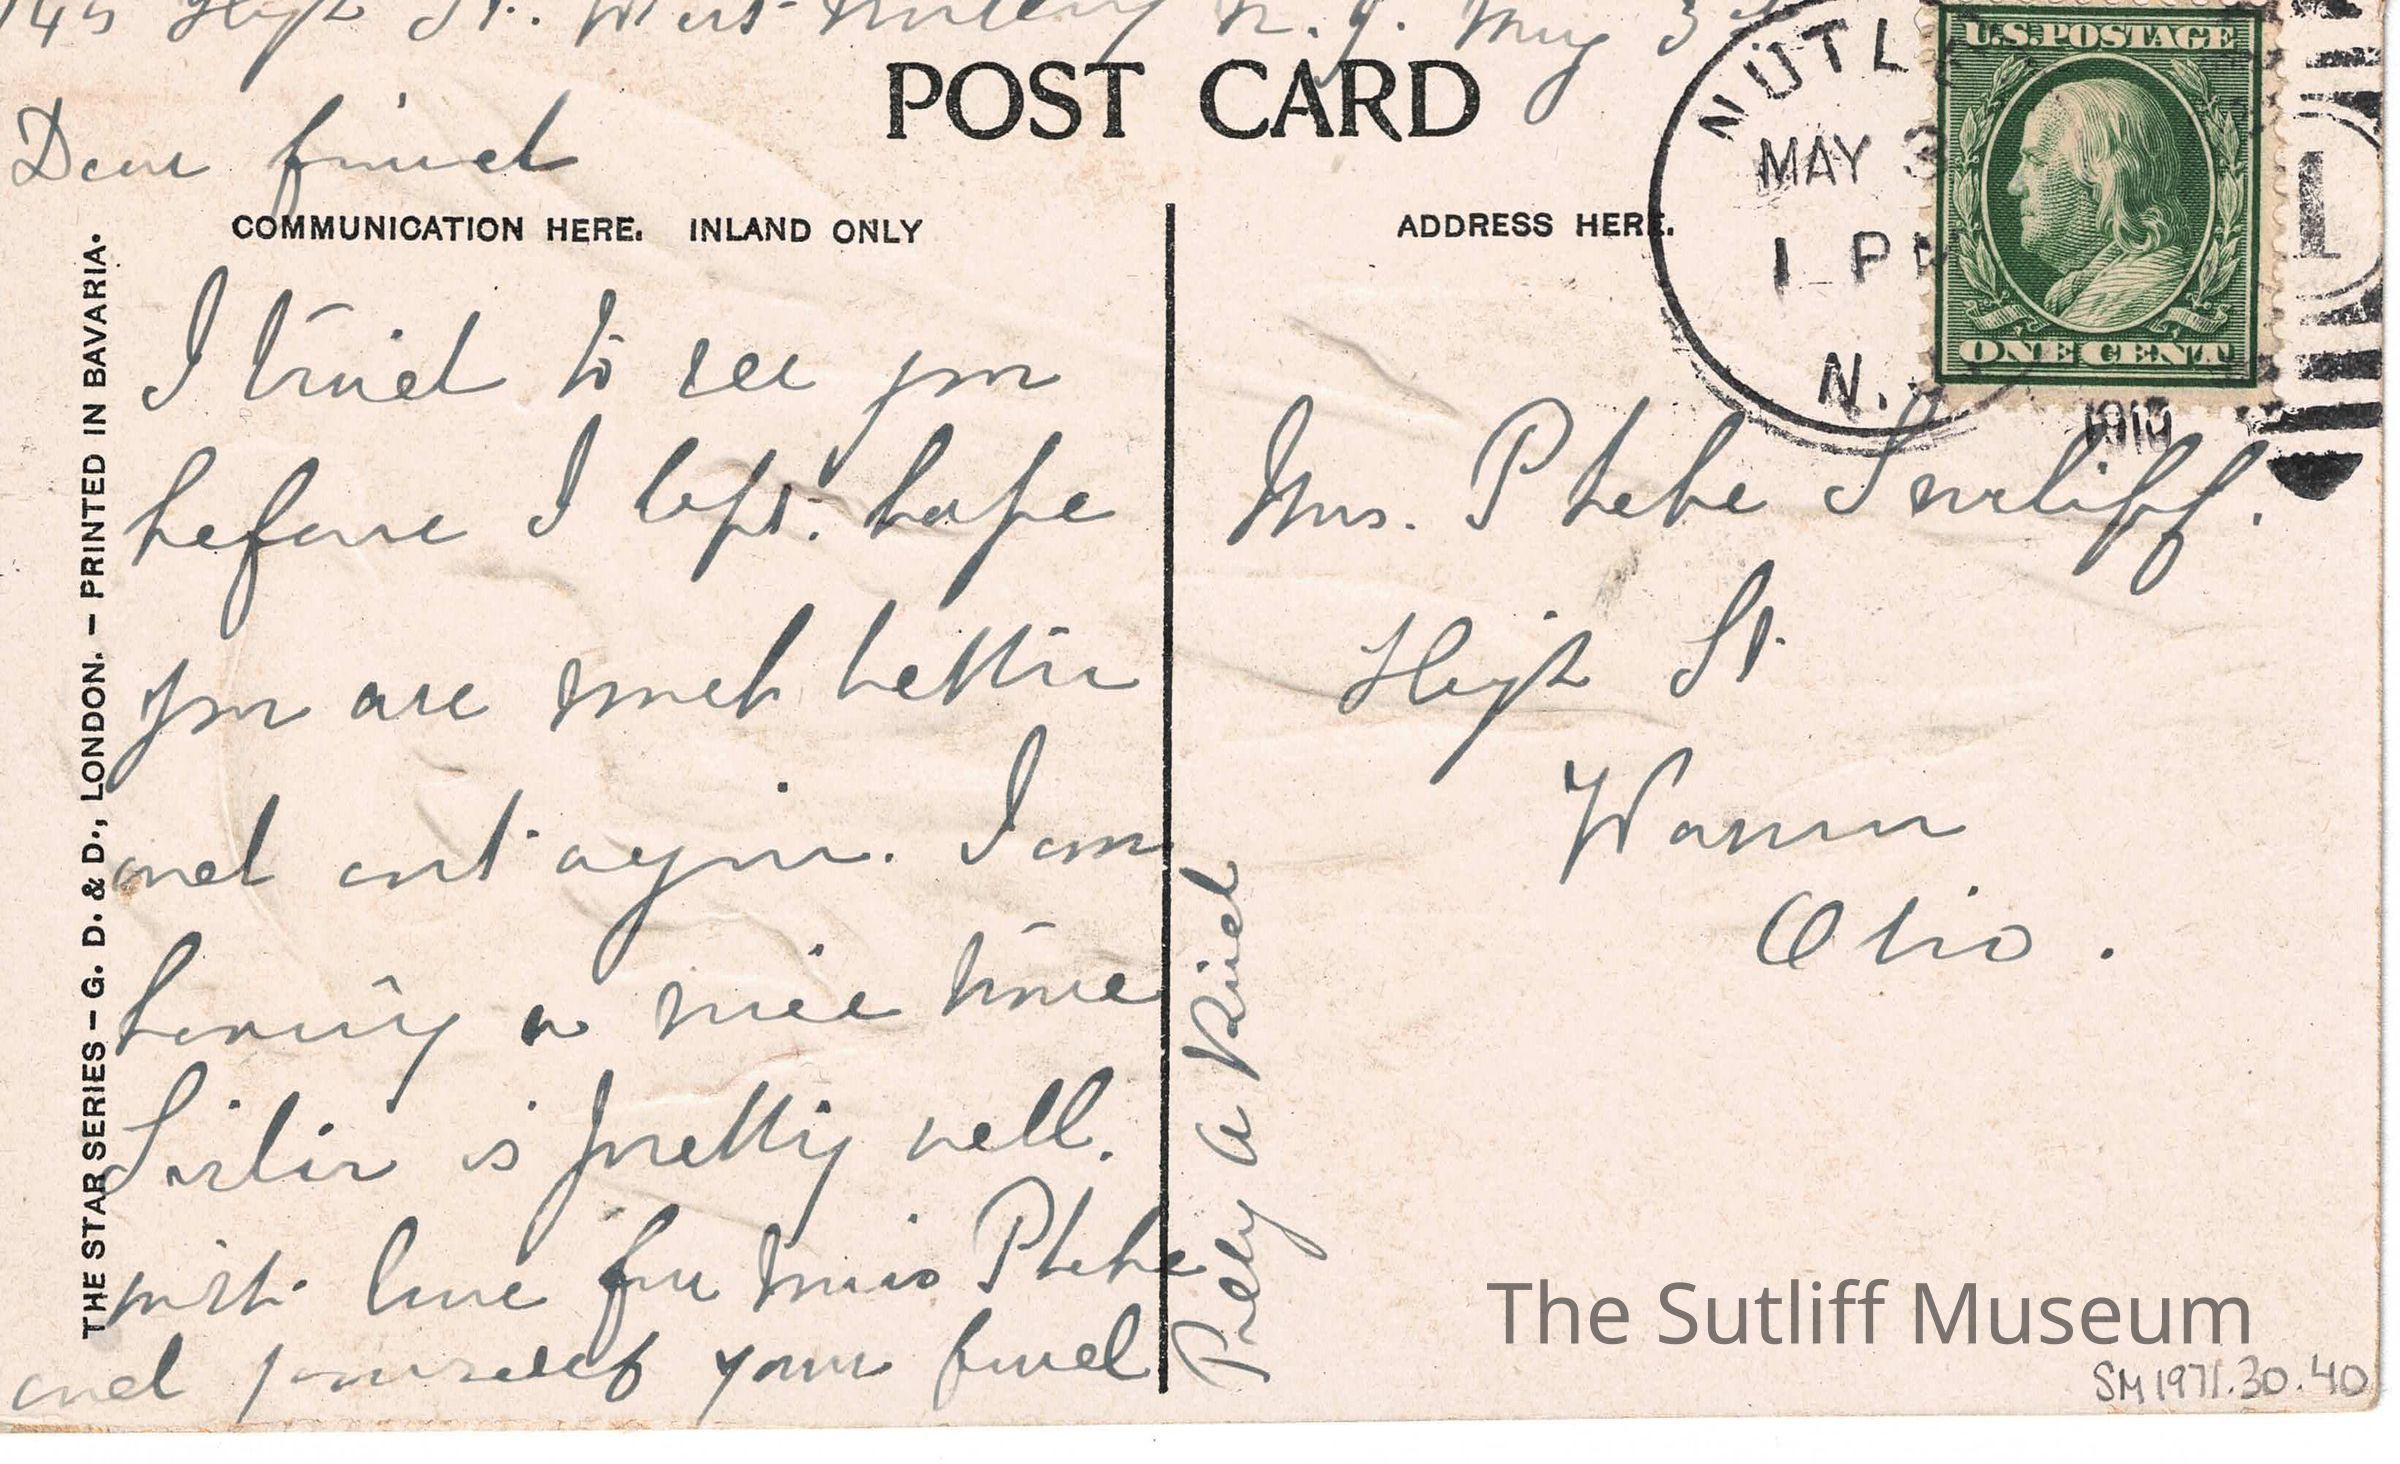 145 High St. West Nutley N. J. May 3
POST CARD
Dear friend
COMMUNICATION HERE. INLAND ONLY
ADDRESS HERE.
NUTLE
MAY 3
1 PM
N.
1910
U.S. POSTAGE
ONE CENT
1
I tried to see you
before I left. hope
you are much better
and out again. I am
having a nice time
Sister is pretty well.
with love for miss Phebe
and yourself your friend
A Ried
Mrs. Phebe Sutliff.
High St.
Warren
Ohio.
THE STAR SERIES – G. D. & D., LONDON. – PRINTED IN BAVARIA.
The Sutliff Museum
SM1971.30.40